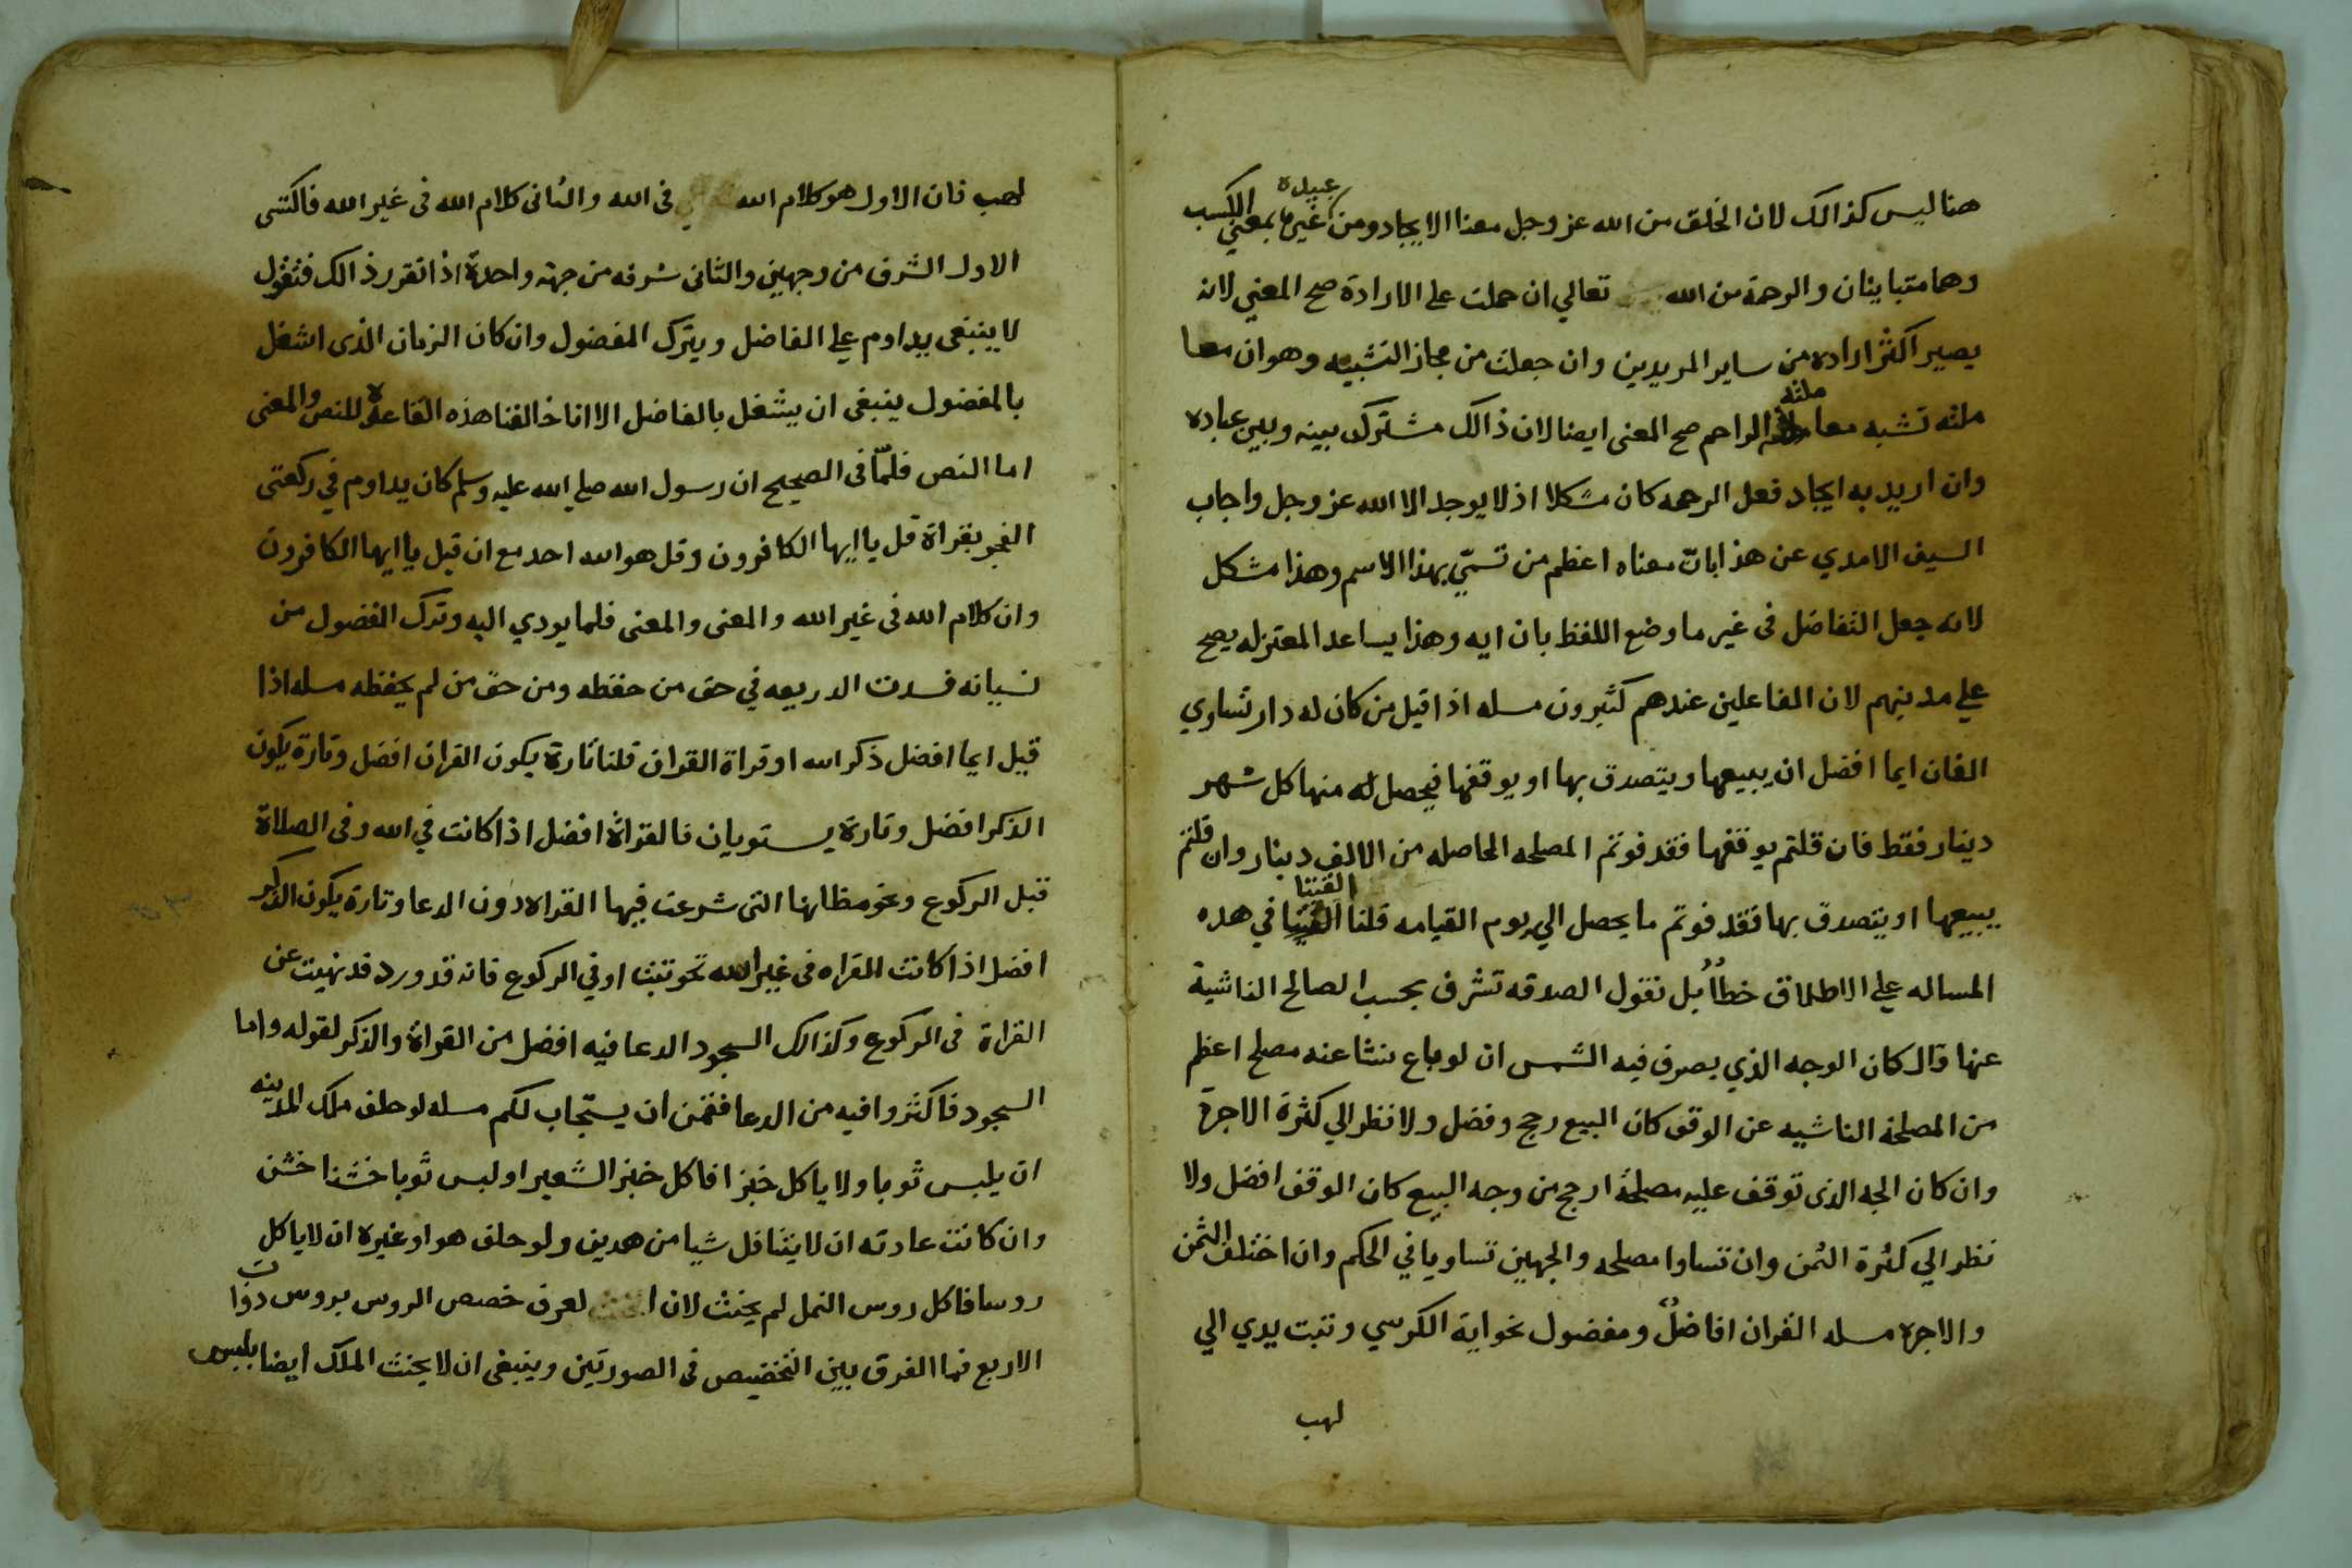 هنا ليس كذالك لان الخلق من الله عز وجل معنا الايجاد ومن غيرها بمعني الكسب
عبيده
وهما متباينان والرحمة من الله تعالي ان حملت على الارادة صح المعني لانه
يصير اكثر اراده من ساير المريدين وان جعلت من مجاز التشبيه وهو ان معا
ملته تشبه معا الراحم صح المعنى ايضا لان ذالك مشترك بينه وبين عباده
ملته
وان اريد به ايجاد فعل الرحمه كان مشكلا اذ لا يوجد الا الله عز وجل واجاب
السيف الامدي عن هذا بانّ معناه اعظم من تسمّي بهذا الاسم وهذا مشكل
لانه جعل التفاضل فى غير ما وضع اللفظ بان ايه وهذا يساعد المعتزله يصح
علي مدبنهم لان الفاعلين عندهم كثيرون مسله اذا قيل من كان له دار تساوي
الفان ايما افضل ان يبيعها ويتصدق بها او يوقفها فيحصل له منها كل شهر
دينار فقط فان قلتم يوقفها فقد فوتم المصلحه الحاصله من الالف دينار وان قلتم
يبيعها او يتصدق بها فقد فوتم ما يحصل الي يوم القيامه قلنا الفتيا في هده
الفتيا
المساله علي الاطلاق خطأ بل نقول الصدقه تشرف بحسب المصالح الناشية
عنها قال كان الوجه الذي يصرف فيه الشمس ان لو باع ينشا عنه مصلح اعظم
من المصلحة الناشيه عن الوقف كان البيع رجح وفضل ولا نظر الي كثرة الاجرة
وان كان الجه الذى توقف عليه مصلحة ارجح من وجه البيع كان الوقف افضل ولا
نظر الي كثرة الثمن وان تساوا مصلحه والجهين تساويا في الحكم وان اختلف الثمن
والاجره مسله القران افاضلٌ ومفضول نحو اية الكرسي وتبت يدي الي
لهب
لهب فان الاول هو كلام الله في الله والثانى كلام الله فى غير الله فاكتسى
الاول الشرف من وجهين والثانى شرفه من جهة واحدة اذا تقرر ذالك فنقول
لا ينبغى يداوم علي الفاضل ويترك المفضول وان كان الزمان الذى اشغل
بالمفضول ينبغى ان يشغل بالفاضل الا انا خالفنا هذه القاعدة للنص والمعنى
اما النص فلمّا فى الصحيح ان رسول الله صلي الله عليه وسلم كان يداوم في ركعتى
الفجر بقراة قل يا ايها الكافرون وقل هو الله احد مع ان قبل يا ايها الكافرون
وان كلام الله فى غير الله والمعنى والمعنى فلما يودي اليه وترك المفضول من
نسيانه فسدت الدريعه في حق من حفظه ومن حق من لم يحفظه مسله اذا
قيل ايما افضل ذكر الله او قراة القران قلنا تارة يكون القران افضل وتارة يكون
الذكر افضل وتارة يستويان فالقراة افضل اذا كانت في الله وفى الصلاة
قبل الركوع ونحو مظانها التى شرعت فيها القراه دون الدعا وتارة يكون الذكر
افضل اذا كانت القراه فى غير الله نحو تبت او في الركوع فانه قد ورد قد نهيت عن
القراة فى الركوع وكذالك السجود الدعا فيه افضل من القراة والذكر لقوله واما
السجود فاكثروا فيه من الدعا فقمن ان يستجاب لكم مسله لو حلف ملك المدينه
ان يلبس ثوبا ولا ياكل خبزا فاكل خبز الشعير او لبس ثوبا خشنا خشن
وان كانت عادته ان لا يتنافل شيا من هدين ولو حلف هو او غيره ان لا ياكل
روسا فاكل روس النمل لم يحنث لان لعرف خصص الروس بروس ذوات
الاربع فما الفرق بين التخضيص فى الصورتين وينبغى ان لا يحنث الملك ايضا بلبس